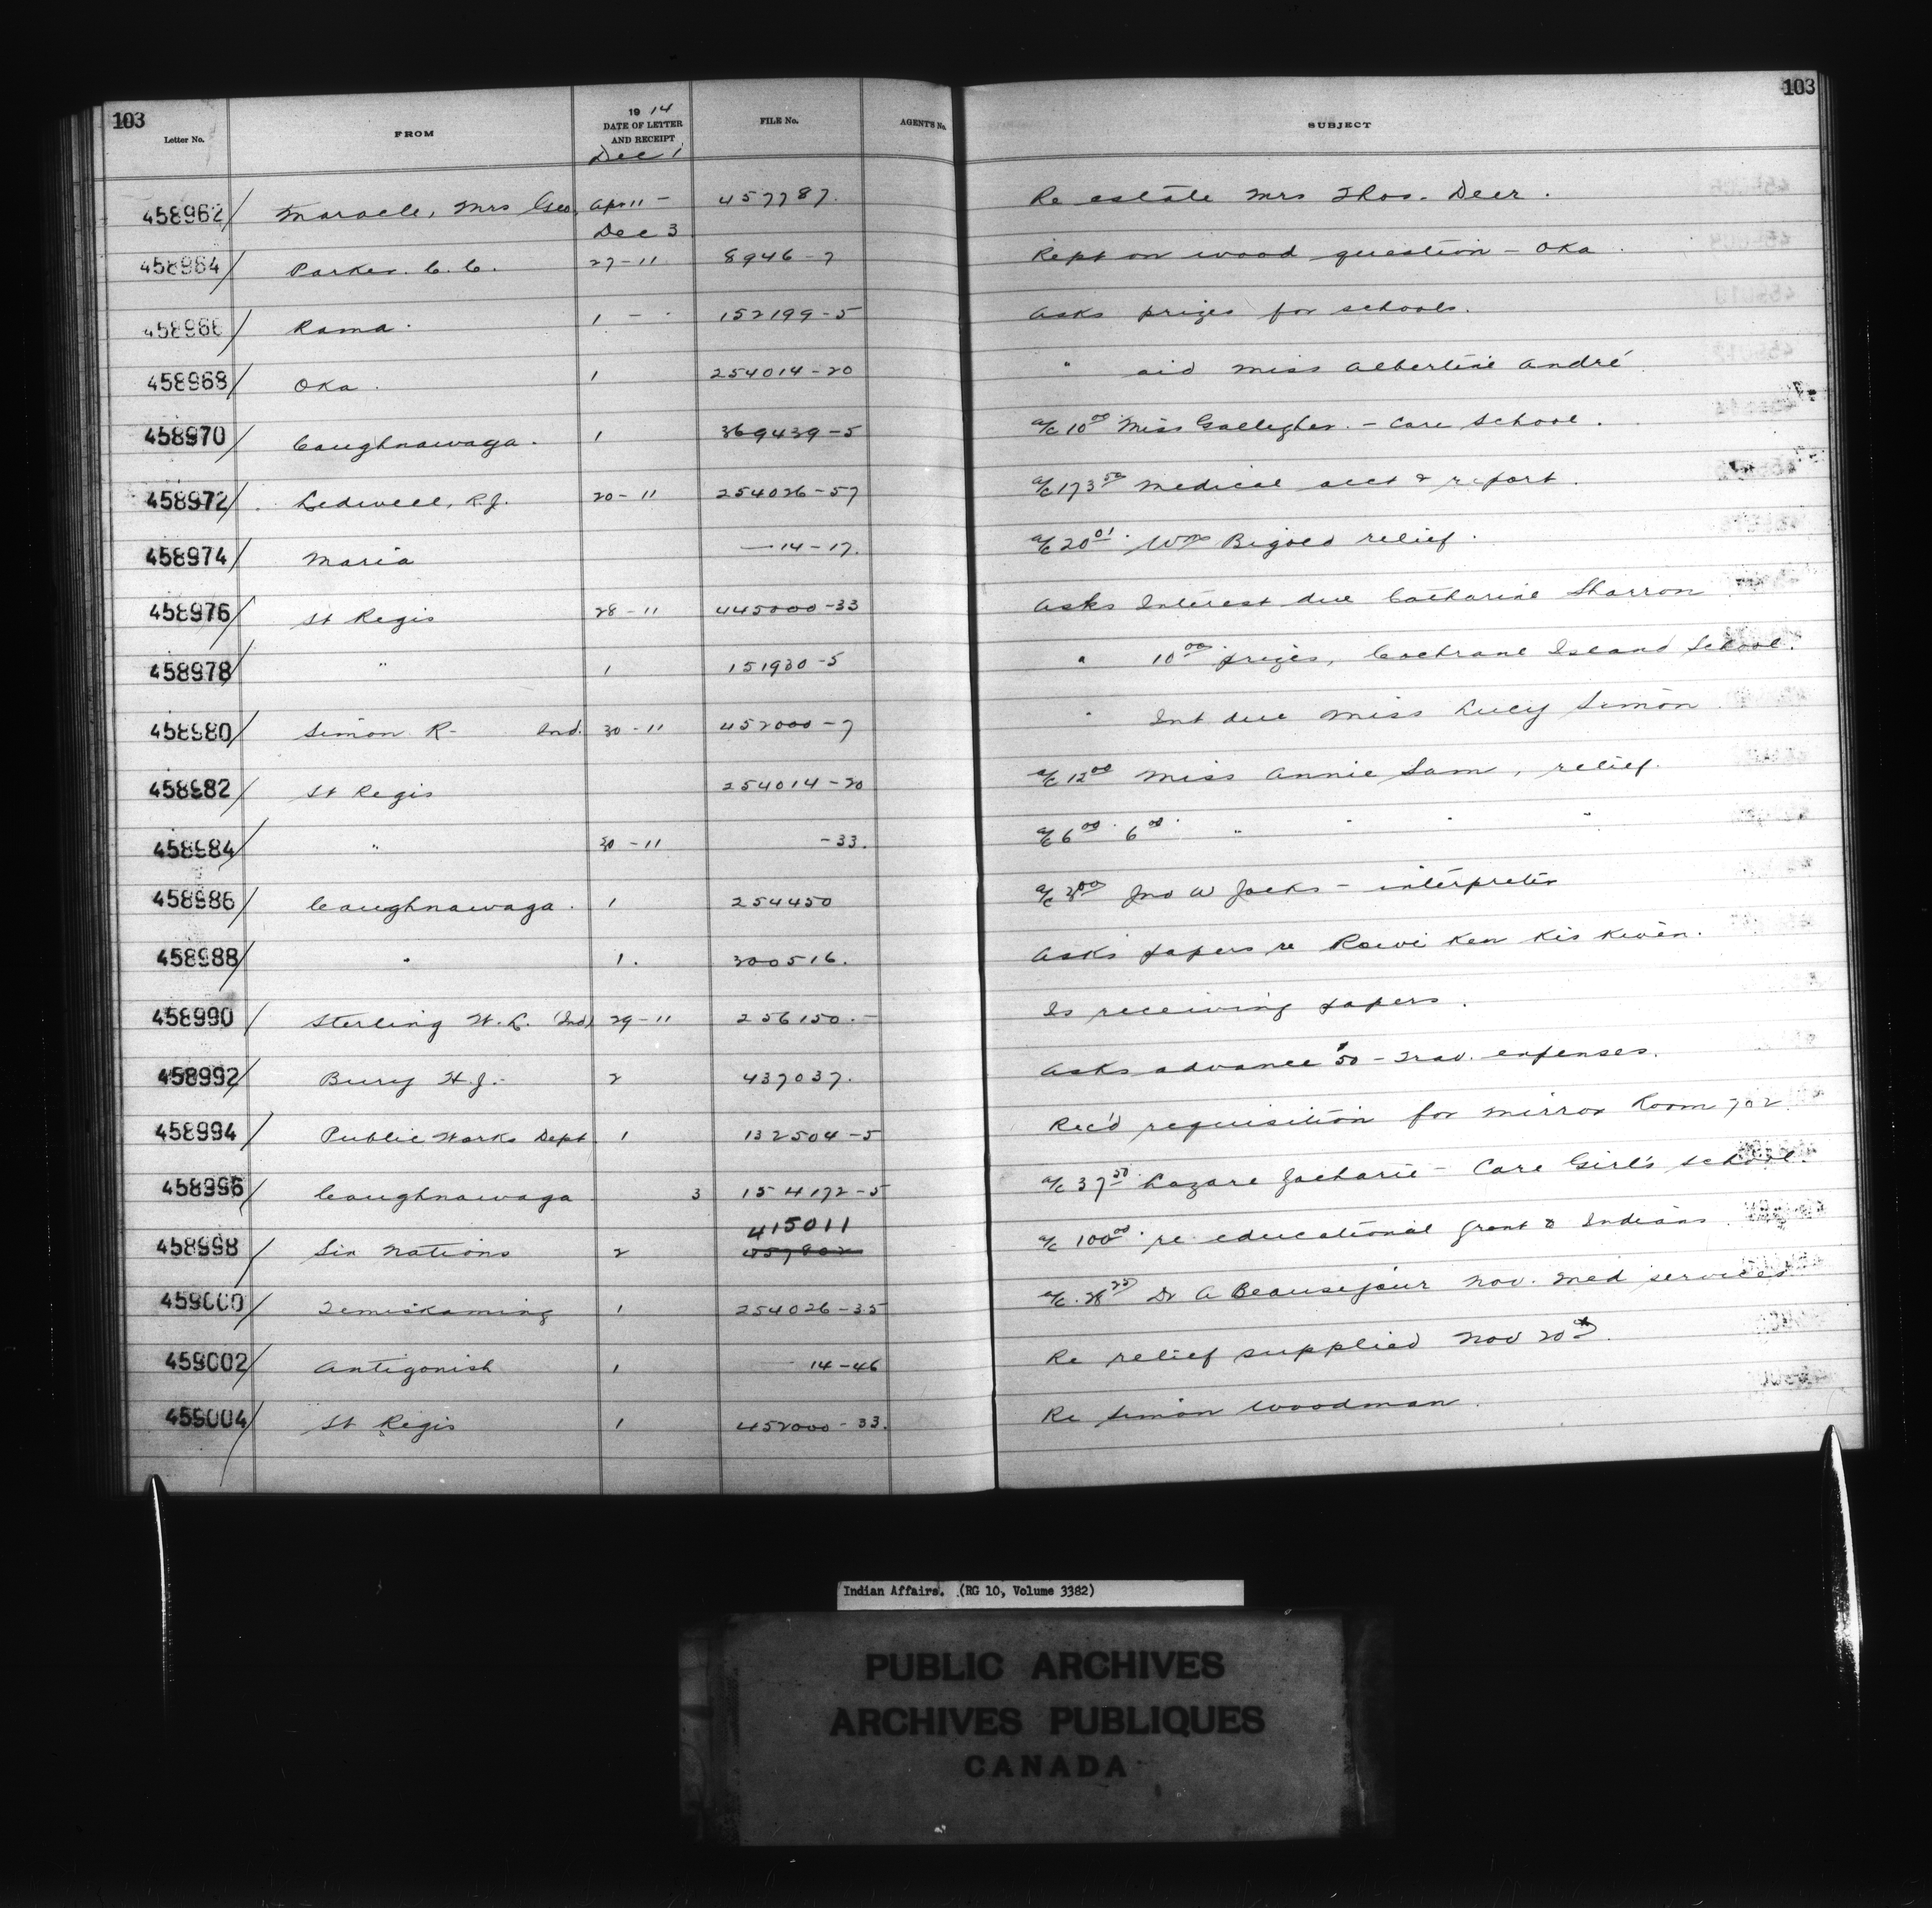 103 103
Letter No. FROM 1914 DATE OF LETTER AND RECEIPT FILE No. AGENT'S No. SUBJECT
Dec 1
458962 Maracle, Mrs Geo. Ap 11 - 457787. Re estate Mrs Thos. Deer.
Dec 3
458964 Parker. C. C. 27-11 8946-7 Rept on wood question - Oka
458966 Rama. 1 - 152199-5 Asks prizes for schools.
458968 Oka. 1 254014-20 " aid Miss Albertine André
458970 Caughnawaga. 1 369439-5 a/c 10 00 Miss Gallegher. - Care School.
458972 Ledwell, R.J. 20-11 254026-57 a/c 173 50 Medical acct & report.
458974 Maria — 14-17. a/c 20 01 Wm Bigold relief.
458976 St Regis 28-11 445000-33 Asks Interest due Catharine Sharron
458978 " 1 151930-5 " 10 00 prizes, Cochrane Island School.
458980 Simon R- Ind. 30-11 452000-7 " Int due Miss Lucy Simon
458982 St Regis 254014-20 a/c 12 00 Miss Annie Sam, relief.
458984 " 30-11 -33. a/c 6 00 6 00 " " " "
458986 Caughnawaga. 1 254450 a/c 00 Jno W Jocks - interpreter
458988 " 1. 300516. Asks papers re Rowi Ken Kis Kwen.
458990 Sterling W. L. (Ind) 29-11 256150.- Is receiving papers.
458992 Bury H.J.- 2 437037. Asks advance $50 - Trav. expenses.
458994 Public Works Dept 1 132504-5 Rec'd requisition for mirror Room 702
458996 Caughnawaga 3 154172-5 a/c 37 50 Lazare Jacharie - Care Girl's School.
415011
458998 Six Nations 2 a/c 100 00 re educational grant to Indians
459000 Temiskaming 1 254026-35 a/c Dr A Beausejour Nov. med services
459002 Antigonish 1 14-46 Re relief supplied Nov 20th.
459004 St Regis 1 452000-33. Re Simon Woodman.
Indian Affairs. (RG 10, Volume 3382)
PUBLIC ARCHIVES
ARCHIVES PUBLIQUES
CANADA